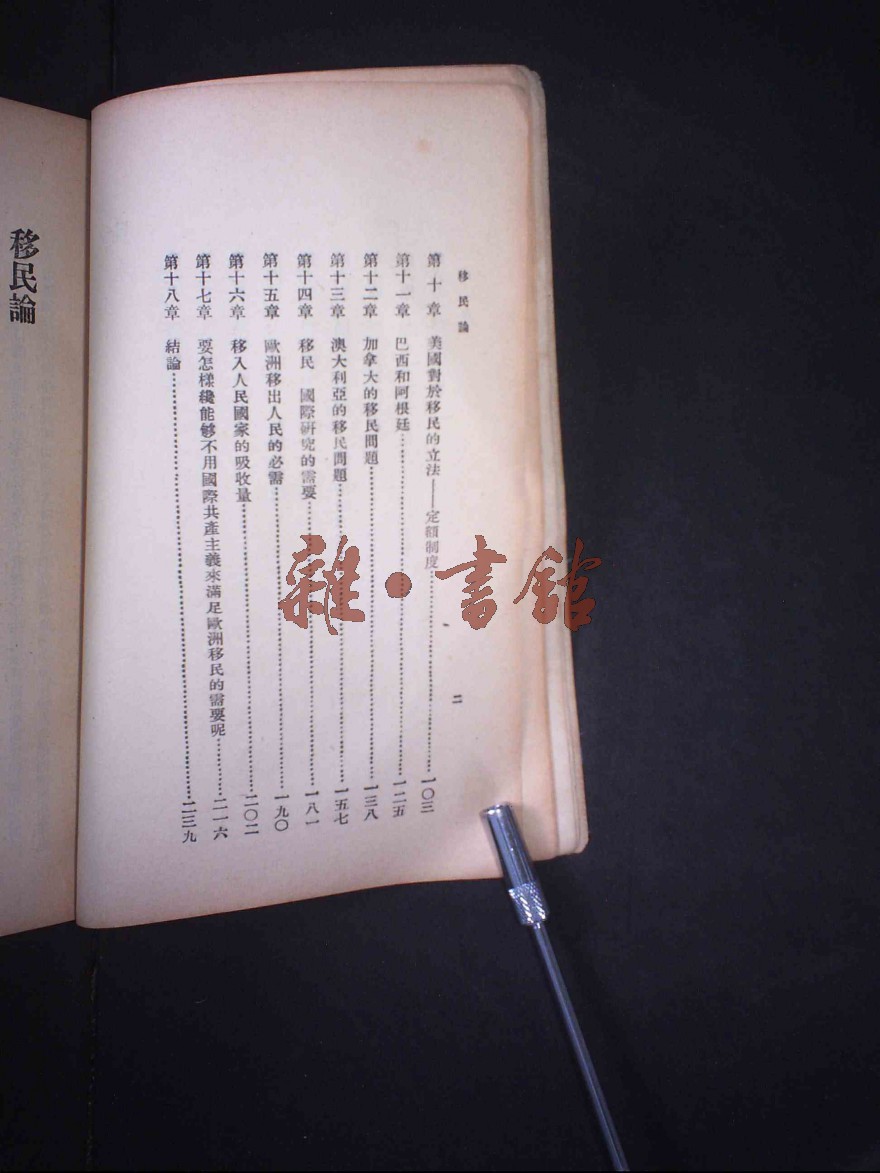 移民論
二
第十章　美國對於移民的立法——定額制度…………一〇三
第十一章　巴西和阿根廷…………一二五
第十二章　加拿大的移民問題…………一三八
第十三章　澳大利亞的移民問題…………一五七
第十四章　移民　國際研究的需要…………一八一
第十五章　歐洲移出人民的必需…………一九〇
第十六章　移入人民國家的吸收量…………二〇二
第十七章　要怎樣纔能够不用國際共產主義來滿足歐洲移民的需要呢…………二一六
第十八章　結論…………二三九
移民論
雜·書館